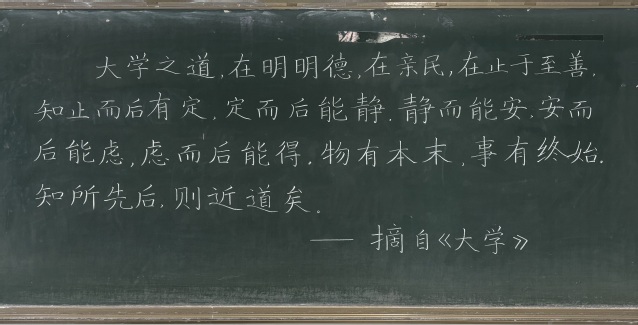 大学之道,在明明德,在亲民,在止于至善,
知止而后有定,定而后能静.静而能安.安而
后能虑,虑而后能得.物有本末,事有终始.
知所先后,则近道矣。
—— 摘自《大学》